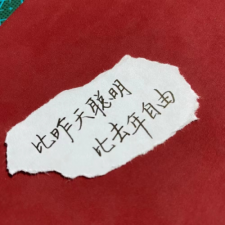 比昨天聪明
比去年自由